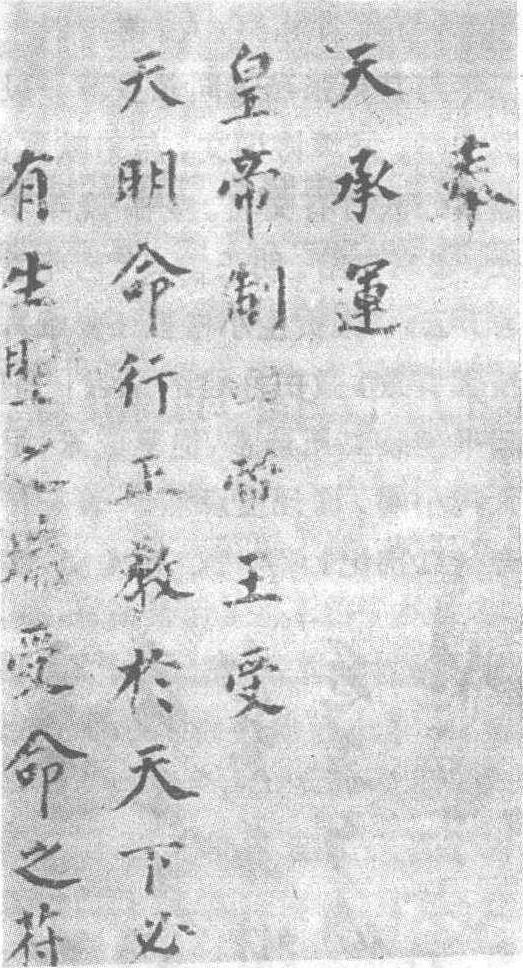 奉
天承運
皇帝制帝王受
天明命行正教於天下必
有生聖之瑞受命之符